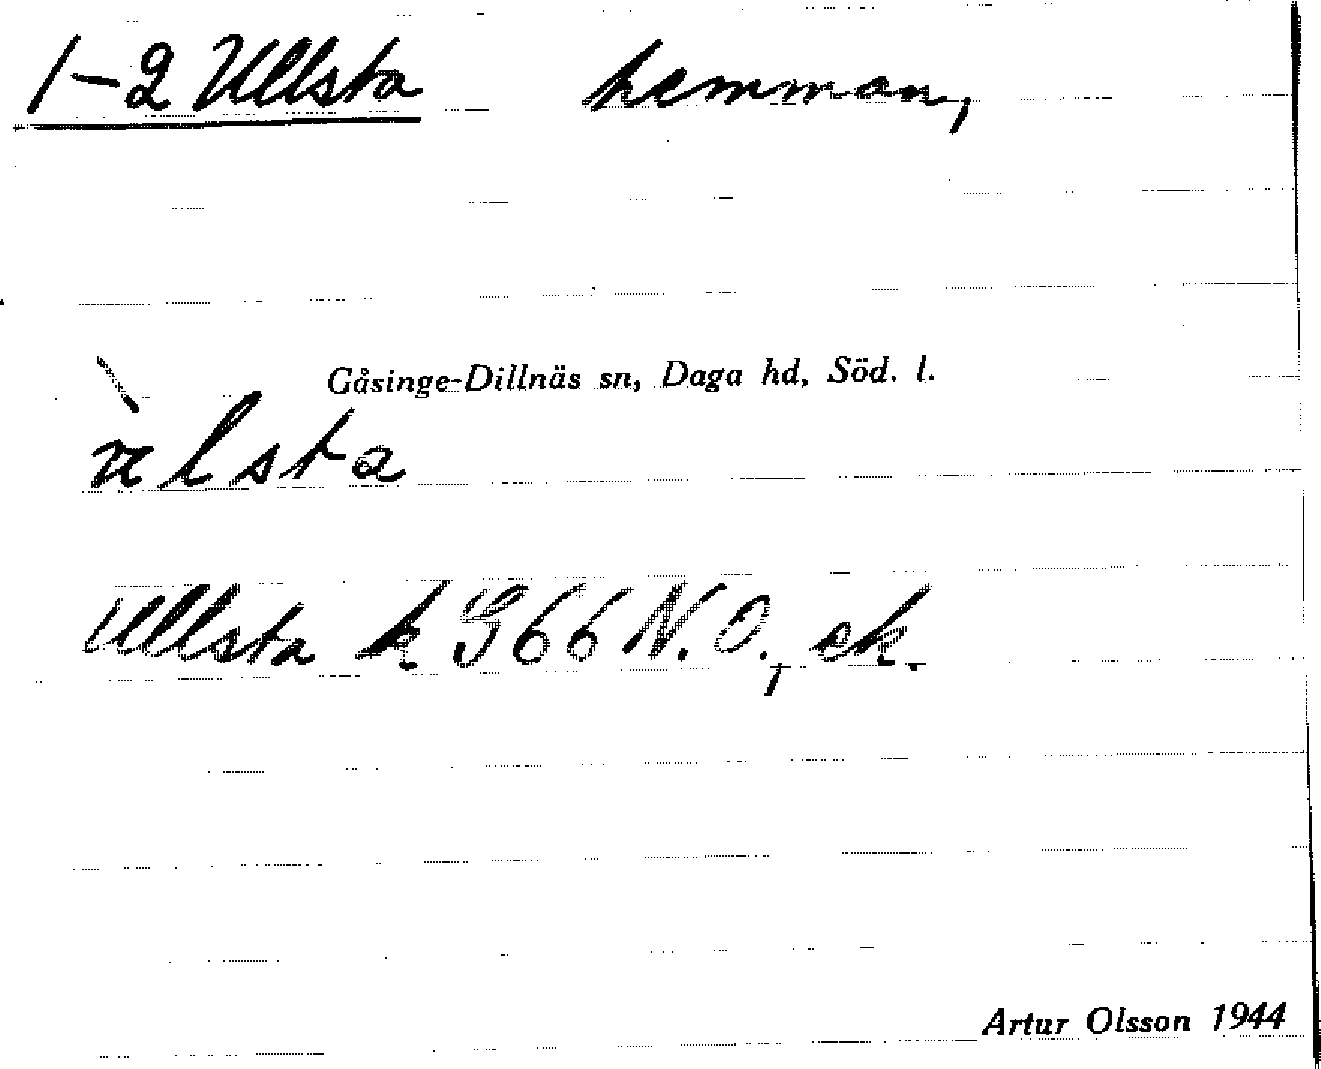 1-2 Ullsta hemman,
Gåsinge-Dillnäs sn, Daga hd, Söd. l.
Ullsta k G66 N.O., ek.
Artur Olsson 1944